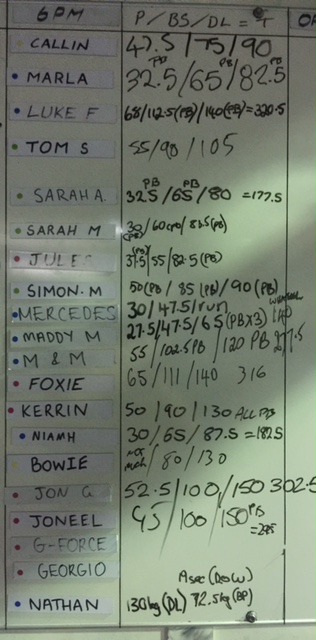 6PM P/BS/DL = T
CALLIN 47.5/75/90
MARLA 32.5/65/82.5 PB PB PB
LUKE F 68/112.5(PB)/140(PB)=320.5
TOM S 55/90/105
SARAH A. 32.5/65/80 =177.5 PB PB
SARAH M 30/60(PB)/82.5(PB)
JULES 37.5/55/82.5(PB) (PB)
SIMON.M 50(PB/85(PB)/90(PB)
MERCEDES 30/47.5/run
MADDY M 27.5/47.5/65(PBX3)
M & M 55/102.5PB/120 PB 277.5
FOXIE 65/111/140 316
KERRIN 50/90/130 ALL PB
NIAMH 30/65/87.5=182.5
BOWIE 80/130
JON G 52.5/100/150 302.5
JONEEL 45/100/150 PB =295
G-FORCE
GEORGIO
NATHAN 130kg(DL) 92.5kg(BP)